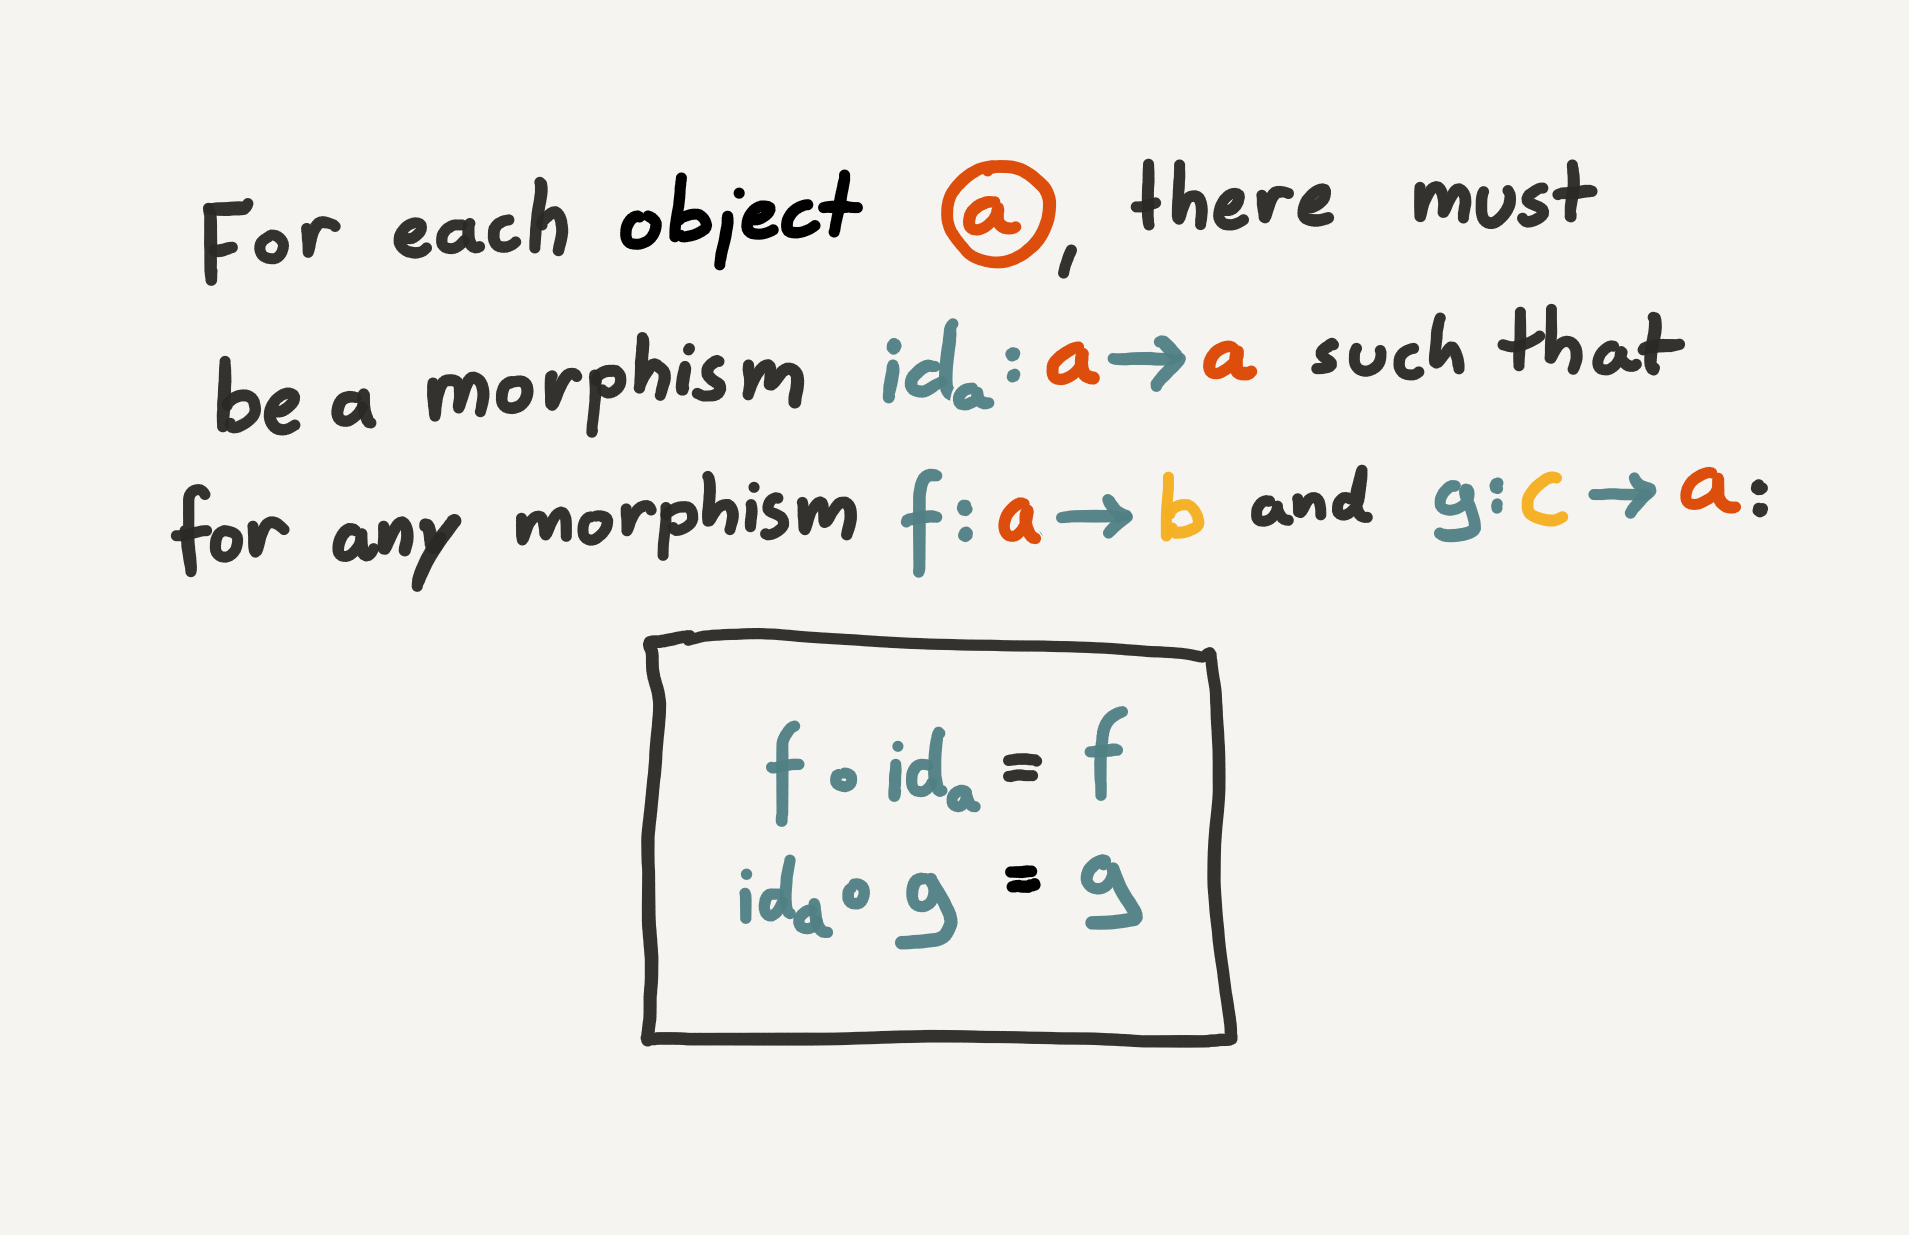 For each object a, there must
be a morphism idₐ : a → a such that
for any morphism f : a → b and g : c → a :
f ∘ idₐ = f
idₐ ∘ g = g